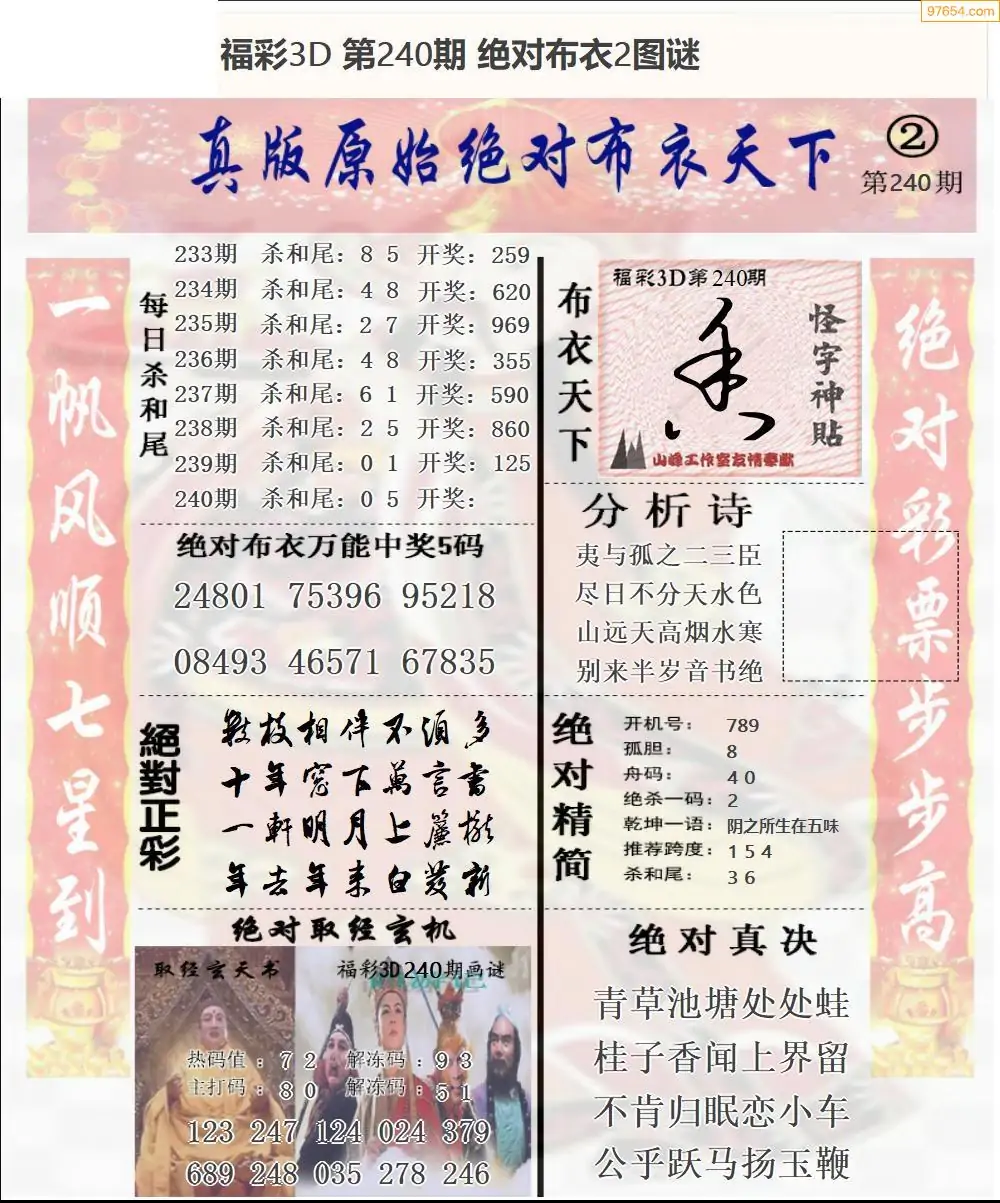 97654.com
福彩3D 第240期 绝对布衣2图谜
真版原始绝对布衣天下
②
第240期
一帆风顺七星到
每日杀和尾
233期 杀和尾：8 5 开奖：259
234期 杀和尾：4 8 开奖：620
235期 杀和尾：2 7 开奖：969
236期 杀和尾：4 8 开奖：355
237期 杀和尾：6 1 开奖：590
238期 杀和尾：2 5 开奖：860
239期 杀和尾：0 1 开奖：125
240期 杀和尾：0 5 开奖：
绝对布衣万能中奖5码
24801 75396 95218
08493 46571 67835
絕對正彩
数枝相伴不须多
十年窓下萬言書
一軒明月上簾櫳
年去年来白发新
绝对取经玄机
取经玄天书
福彩3D240期画谜
热码值：7 2 解冻码：9 3
主打码：8 0 解冻码：5 1
123 247 124 024 379
689 248 035 278 246
布衣天下
福彩3D第240期
怪字神貼
山峰工作室友情奉献
分析诗
夷与孤之二三臣
尽日不分天水色
山远天高烟水寒
别来半岁音书绝
绝对精简
开机号：789
孤胆：8
舟码：4 0
绝杀一码：2
乾坤一语：阴之所生在五味
推荐跨度：1 5 4
杀和尾：3 6
绝对真决
青草池塘处处蛙
桂子香闻上界留
不肯归眠恋小车
公乎跃马扬玉鞭
绝对彩票步步高